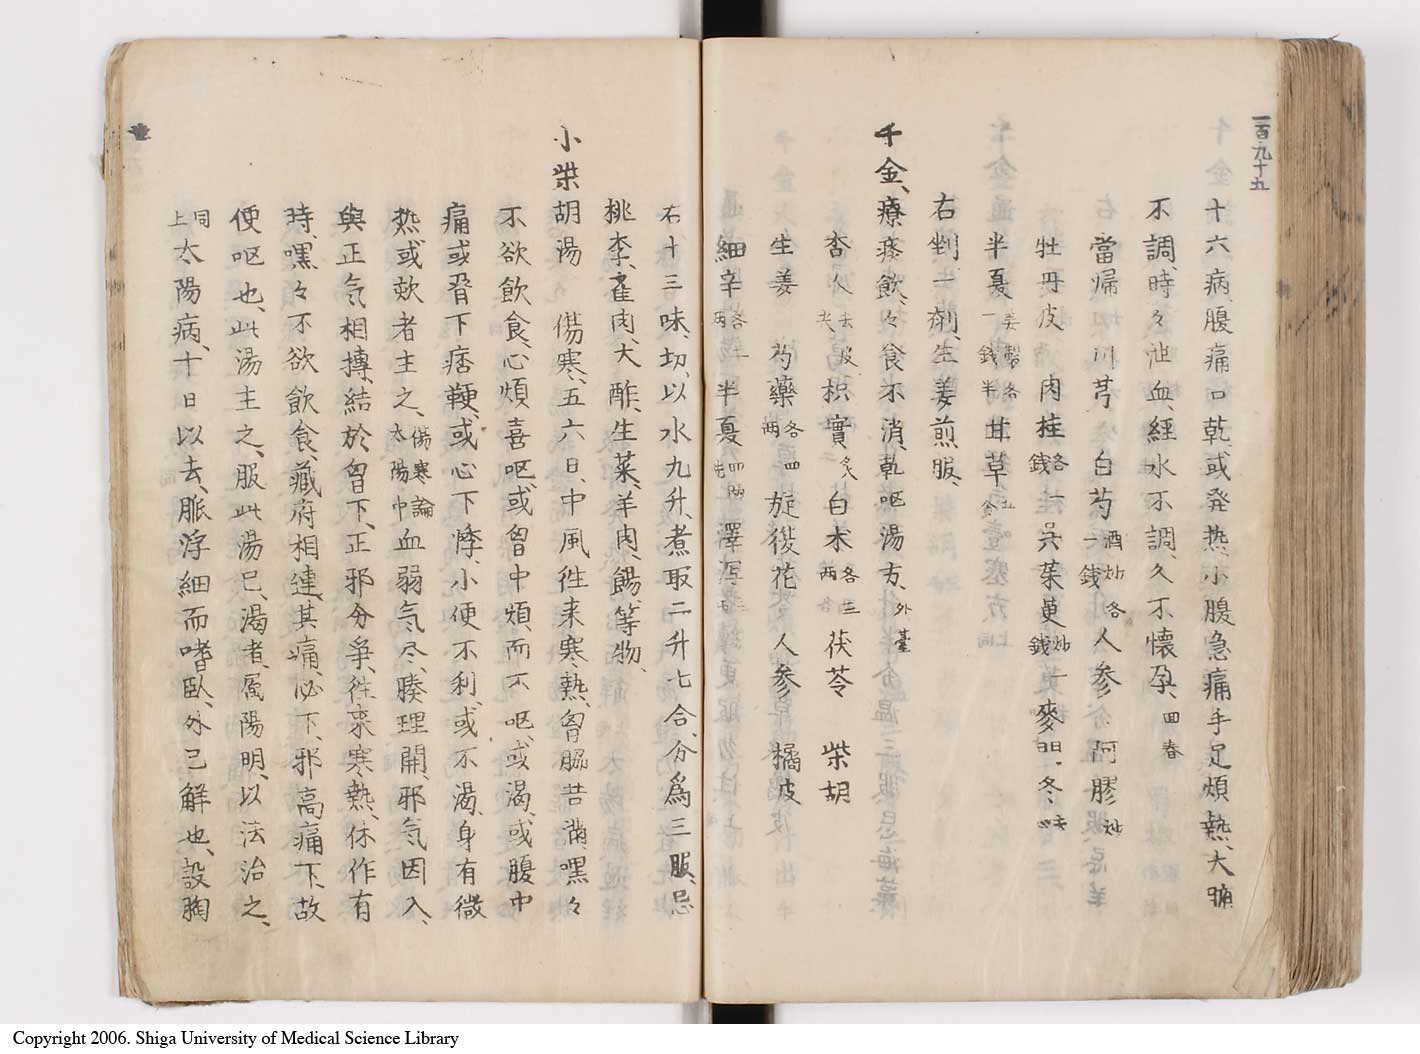 一百九十五
十六病、腹痛口乾、或発热、小腹急痛手足煩熱、大腑
不調、時々泄血、經水不調、久不懷孕、回春
當帰 川芎 白芍酒炒各一錢 人参 阿膠炒
牡丹皮 肉桂各一錢 呉茱萸炒一錢 麥門冬去心
半夏姜製各一錢半 甘草五分
右剉一劑、生姜煎服、
千金、療痰飲、々食不消、乾呕湯方、外臺
杏人去皮尖 枳實炙 白朮各三両 茯苓 柴胡
生姜 芍藥各四両 旋復花 人参 橘皮
細辛各一両 半夏四両洗 澤瀉
右十三味、切、以水九升、煮取二升七合、分爲三服、忌
桃李、雀肉、大酢、生菜、羊肉、餳、等物、
小柴胡湯 傷寒、五六日、中風徃来寒、熱、胷脇苦滿、嘿々
不欲飲食、心煩喜呕、或胷中煩、而不呕、或渴、或腹中
痛或脅下痞鞕、或心下悸、小便不利、或不渴、身有微
热、或欬者主之、傷寒論太陽中 血弱气尽、腠理開、邪気因入、
與正気相摶、結於脅下、正邪分爭、徃来寒熱、休作有
時、嘿々不欲飲食、藏府相連、其痛、必下、邪高痛下、故
使呕也、此湯主之、服此湯已、渴者、屬陽明、以法治之、
同上 太陽病、十日以去、脈浮細而嗜臥、外已解也、設胸
Copyright 2006. Shiga University of Medical Science Library